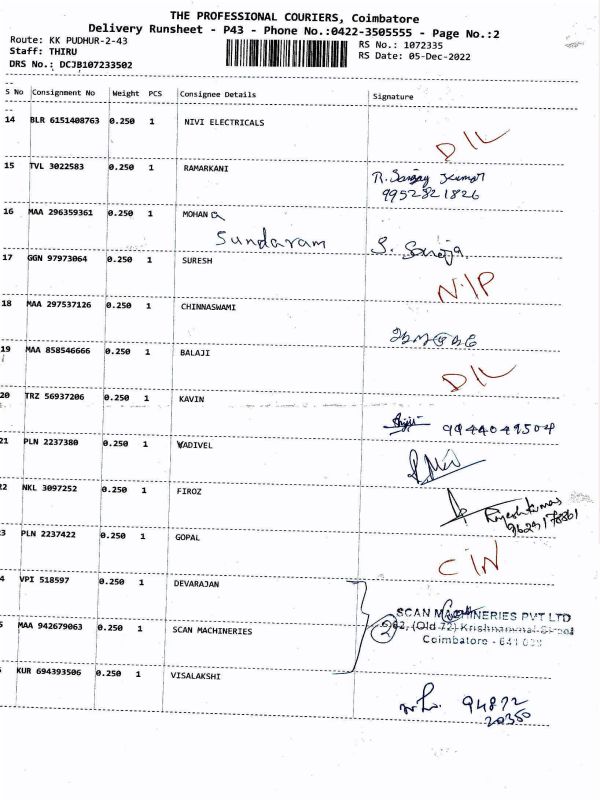 THE PROFESSIONAL COURIERS, Coimbatore
Delivery Runsheet - P43 - Phone No.:0422-3505555 - Page No.:2
Route: KK PUDHUR-2-43
RS No.: 1072335
Staff: THIRU
RS Date: 05-Dec-2022
DRS No.: DCJB107233502
S No Consignment No Weight PCS Consignee Details Signature
14 BLR 6151408763 0.250 1 NIVI ELECTRICALS
D/L
15 TVL 3022583 0.250 1 RAMARKANI
R. Sanjay Kumar
9952821826
16 MAA 296359361 0.250 1 MOHAN a
Sundaram S. Saroja
17 GGN 97973064 0.250 1 SURESH
N/P
18 MAA 297537126 0.250 1 CHINNASWAMI
19 MAA 858546666 0.250 1 BALAJI
D/L
20 TRZ 56937206 0.250 1 KAVIN
9944049504
21 PLN 2237380 0.250 1 VADIVEL
2 NKL 3097252 0.250 1 FIROZ
Rajeshkumar
9629178861
3 PLN 2237422 0.250 1 GOPAL
C/N
4 VPI 518597 0.250 1 DEVARAJAN
SCAN MACHINERIES PVT LTD
5 MAA 942679063 0.250 1 SCAN MACHINERIES
2 62, (Old 72) Krishnammal Street
Coimbatore - 641
KUR 694393506 0.250 1 VISALAKSHI
94872
20350